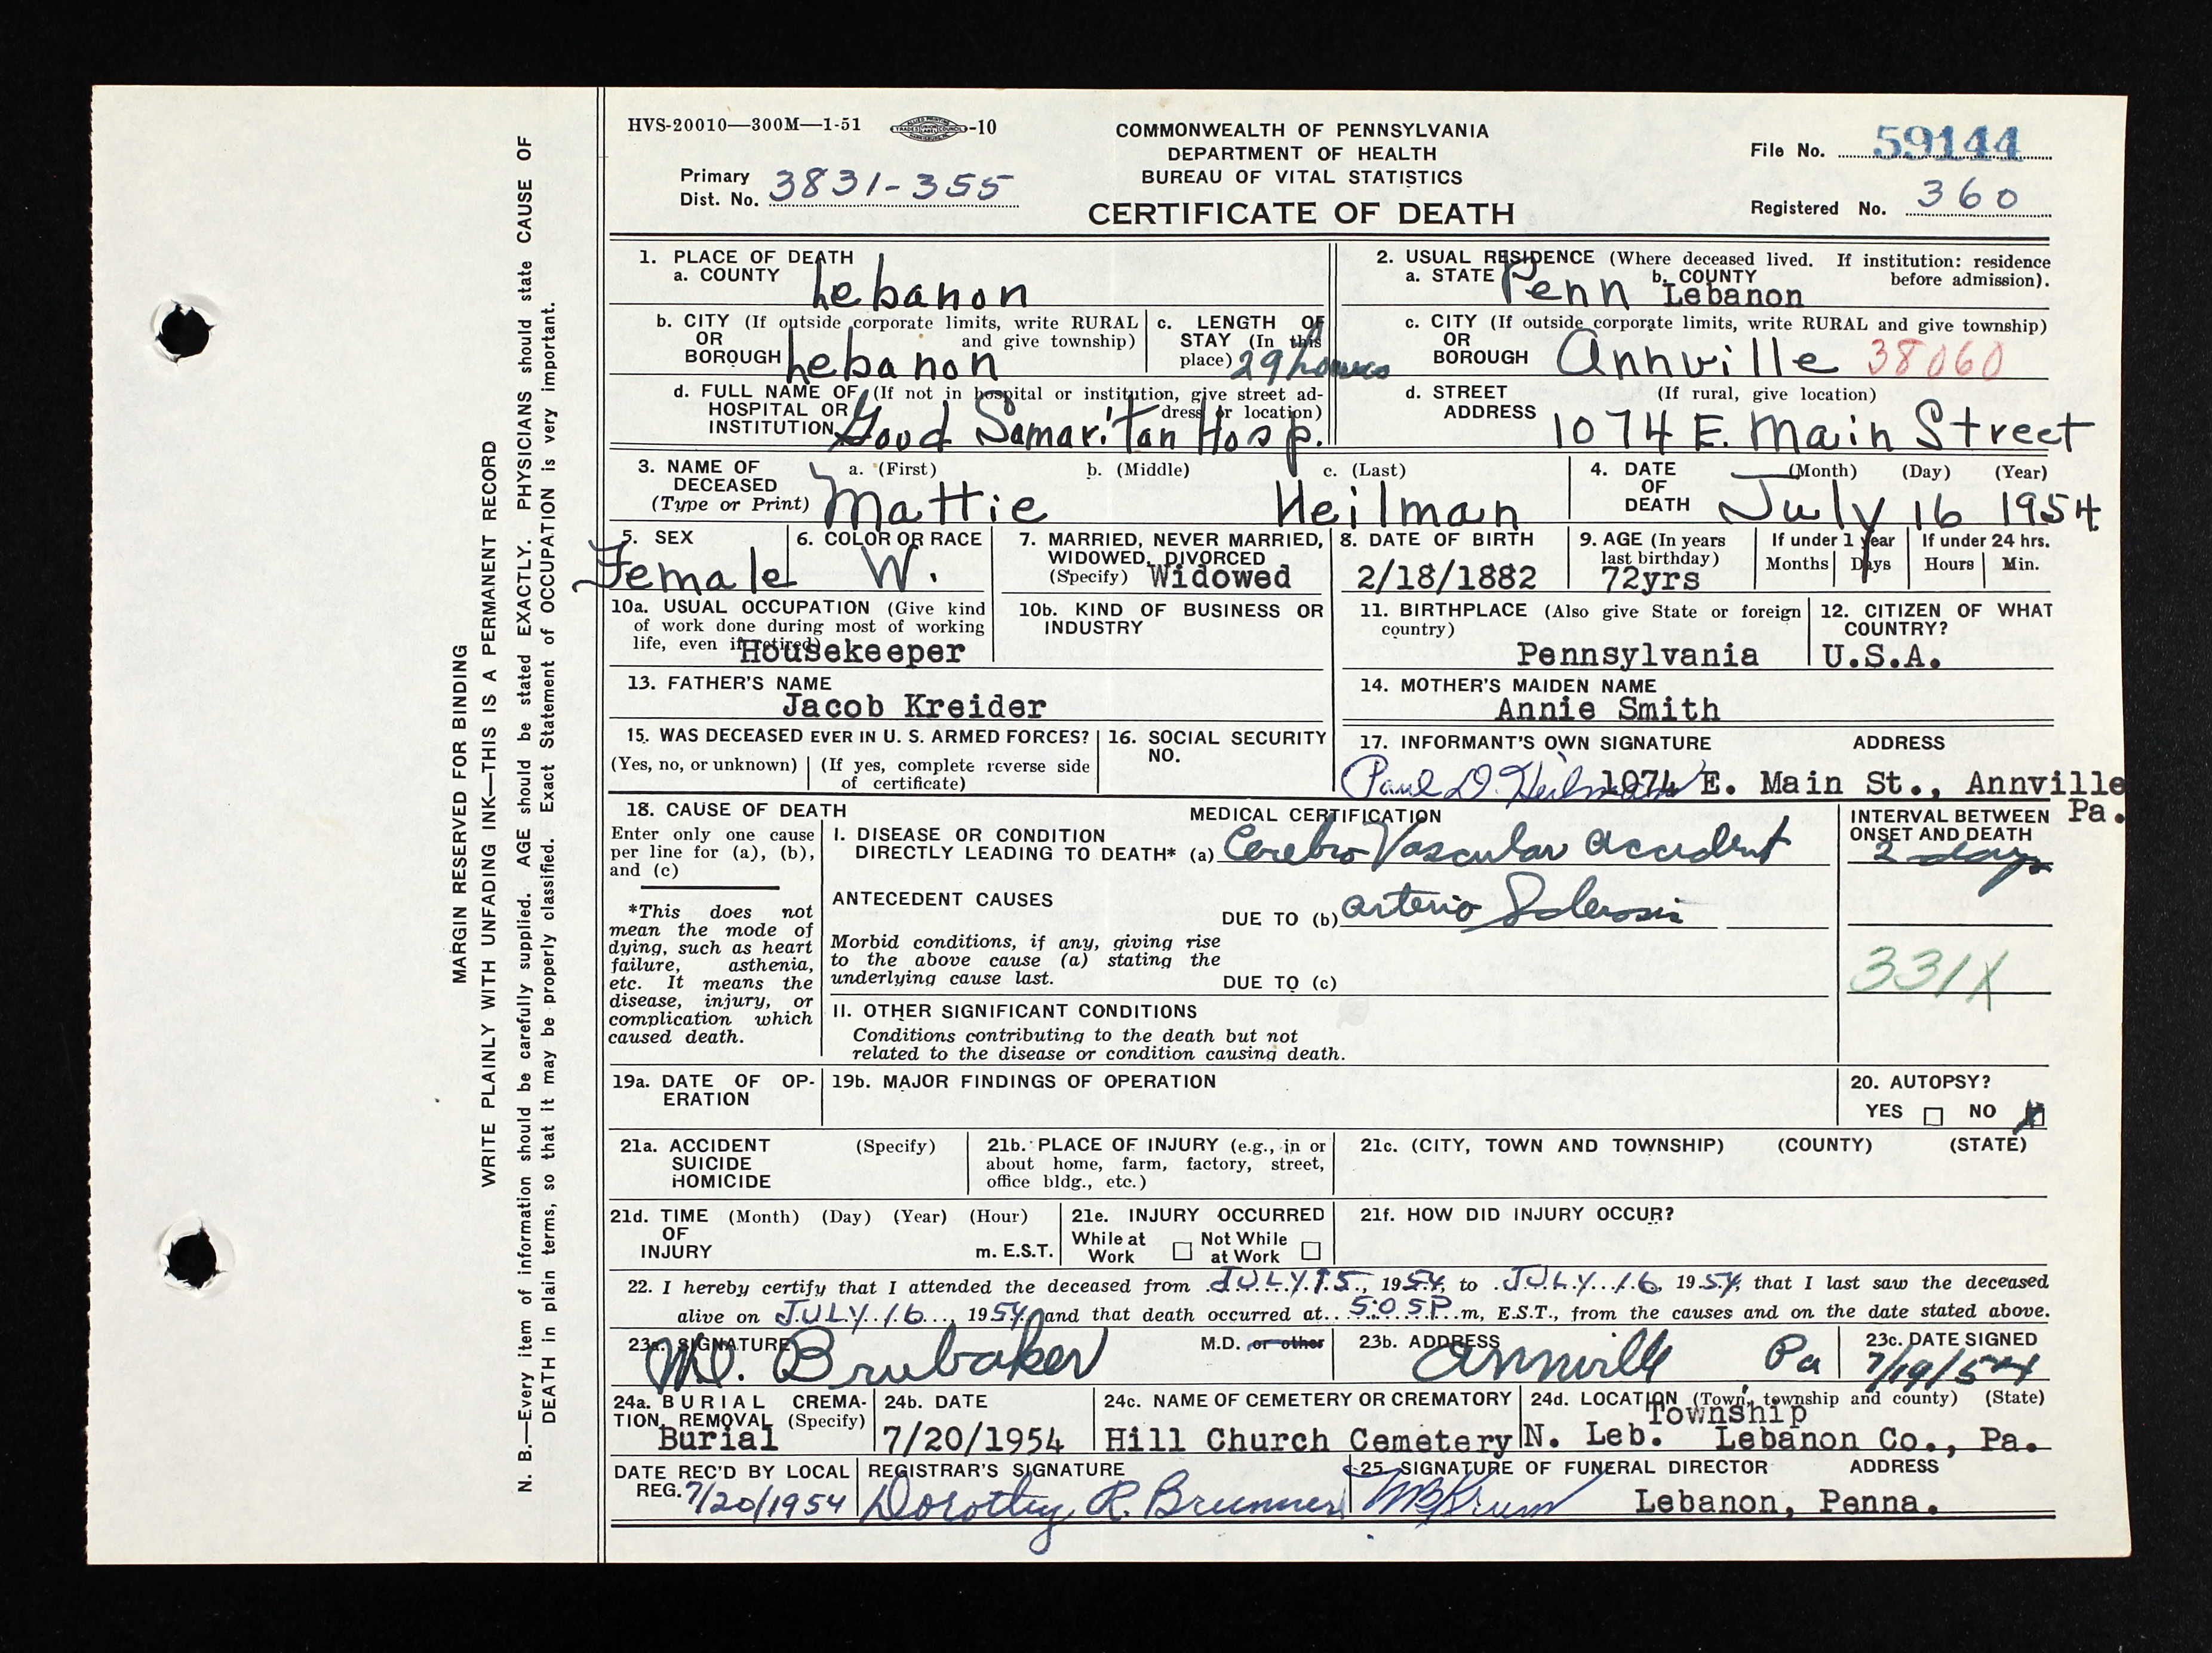 HVS-20010—300M—1-51 -10
COMMONWEALTH OF PENNSYLVANIA
DEPARTMENT OF HEALTH
BUREAU OF VITAL STATISTICS
CERTIFICATE OF DEATH
Primary Dist. No. 3831-355
File No. 59144
Registered No. 360
MARGIN RESERVED FOR BINDING
WRITE PLAINLY WITH UNFADING INK—THIS IS A PERMANENT RECORD
N. B.—Every item of information should be carefully supplied. AGE should be stated EXACTLY. PHYSICIANS should state CAUSE OF
DEATH in plain terms, so that it may be properly classified. Exact Statement of OCCUPATION is very important.
1. PLACE OF DEATH
a. COUNTY Lebanon
2. USUAL RESIDENCE (Where deceased lived. If institution: residence before admission).
a. STATE Penn b. COUNTY Lebanon
b. CITY (If outside corporate limits, write RURAL and give township)
OR BOROUGH Lebanon
c. LENGTH OF STAY (In this place) 29 hours
c. CITY (If outside corporate limits, write RURAL and give township)
OR BOROUGH Annville 38060
d. FULL NAME OF (If not in hospital or institution, give street address or location)
HOSPITAL OR INSTITUTION Good Samaritan Hosp.
d. STREET ADDRESS (If rural, give location)
1074 E. Main Street
3. NAME OF DECEASED (Type or Print)
a. (First) b. (Middle) c. (Last)
Mattie Heilman
4. DATE OF DEATH (Month) (Day) (Year)
July 16 1954
5. SEX
Female
6. COLOR OR RACE
W.
7. MARRIED, NEVER MARRIED, WIDOWED, DIVORCED (Specify) Widowed
8. DATE OF BIRTH
2/18/1882
9. AGE (In years last birthday)
72yrs
If under 1 year
Months Days
If under 24 hrs.
Hours Min.
10a. USUAL OCCUPATION (Give kind of work done during most of working life, even if retired)
Housekeeper
10b. KIND OF BUSINESS OR INDUSTRY
11. BIRTHPLACE (Also give State or foreign country)
Pennsylvania
12. CITIZEN OF WHAT COUNTRY?
U.S.A.
13. FATHER'S NAME
Jacob Kreider
14. MOTHER'S MAIDEN NAME
Annie Smith
15. WAS DECEASED EVER IN U. S. ARMED FORCES?
(Yes, no, or unknown) (If yes, complete reverse side of certificate)
16. SOCIAL SECURITY NO.
17. INFORMANT'S OWN SIGNATURE ADDRESS
Paul D. Heilman 1074 E. Main St., Annville Pa.
18. CAUSE OF DEATH
Enter only one cause per line for (a), (b), and (c)
*This does not mean the mode of dying, such as heart failure, asthenia, etc. It means the disease, injury, or complication which caused death.
MEDICAL CERTIFICATION
I. DISEASE OR CONDITION
DIRECTLY LEADING TO DEATH* (a) Cerebro Vascular accident
ANTECEDENT CAUSES
DUE TO (b) arterio Sclerosis
Morbid conditions, if any, giving rise to the above cause (a) stating the underlying cause last.
DUE TO (c)
II. OTHER SIGNIFICANT CONDITIONS
Conditions contributing to the death but not related to the disease or condition causing death.
INTERVAL BETWEEN ONSET AND DEATH
2 days
331X
19a. DATE OF OPERATION
19b. MAJOR FINDINGS OF OPERATION
20. AUTOPSY?
YES NO X
21a. ACCIDENT SUICIDE HOMICIDE (Specify)
21b. PLACE OF INJURY (e.g., in or about home, farm, factory, street, office bldg., etc.)
21c. (CITY, TOWN AND TOWNSHIP) (COUNTY) (STATE)
21d. TIME OF INJURY (Month) (Day) (Year) (Hour)
m. E.S.T.
21e. INJURY OCCURRED
While at Work Not While at Work
21f. HOW DID INJURY OCCUR?
22. I hereby certify that I attended the deceased from JULY 15, 1954, to JULY 16, 1954, that I last saw the deceased
alive on JULY 16, 1954, and that death occurred at 5:05P m, E.S.T., from the causes and on the date stated above.
23a. SIGNATURE
Brubaker M.D. or other
23b. ADDRESS
Annville Pa
23c. DATE SIGNED
7/19/54
24a. BURIAL CREMATION, REMOVAL (Specify)
Burial
24b. DATE
7/20/1954
24c. NAME OF CEMETERY OR CREMATORY
Hill Church Cemetery
24d. LOCATION (Town, township and county) (State)
Township
N. Leb. Lebanon Co., Pa.
DATE REC'D BY LOCAL REG. 7/20/1954
REGISTRAR'S SIGNATURE
Dorothy R. Brunner
25. SIGNATURE OF FUNERAL DIRECTOR ADDRESS
Lebanon, Penna.